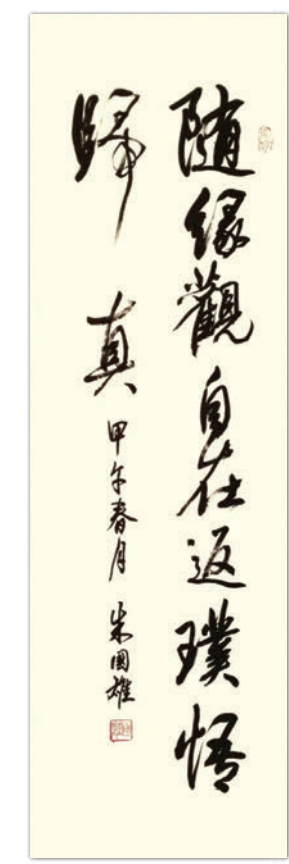 随緣觀自在返璞悟
歸真
甲午春月 朱國雄